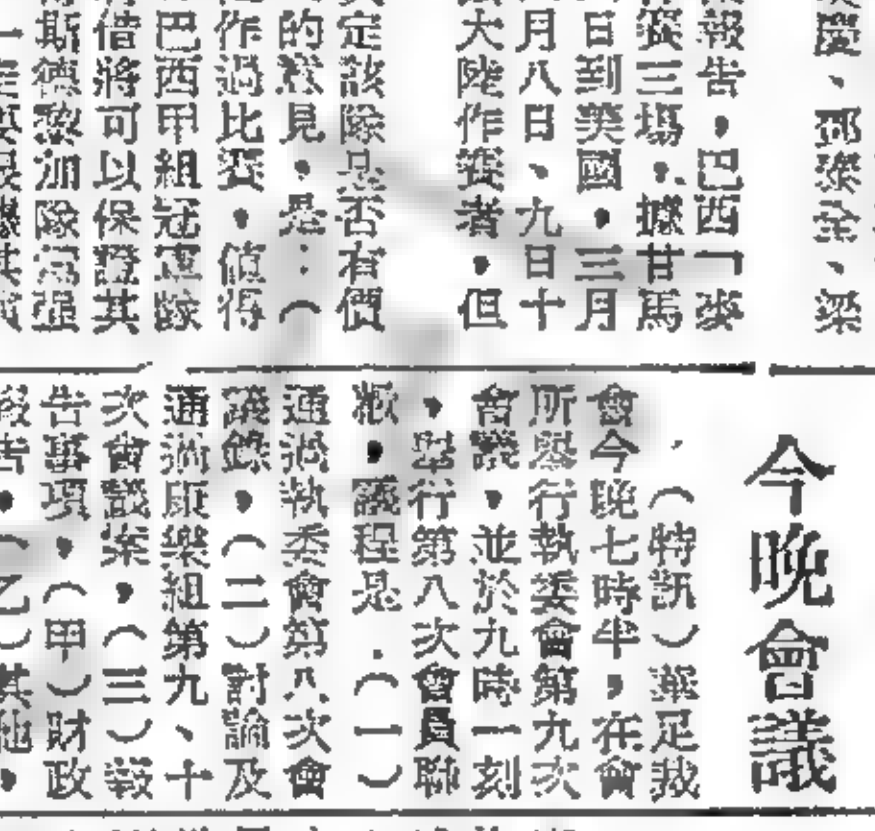 慶、鄧
全、梁
報告，巴西「麥
三場，據甘馬
日到美國，三月
月八日、九日十
大陸作賽者，但
定該隊是否有價
的意見，是：（
作過比賽，值得
巴西甲組冠軍隊
借將可以保證其
斯德黎加隊
今晚會議
（特訊）華足裁
會今晚七時半，在會
所舉行執委會第九次
會議，並於九時一刻
，舉行第八次會員聯
歡，議程是：（一）
通過執委會第八次會
議錄，（二）討論及
通過康樂組第九、十
次會議案，（三）報
告事項，（甲）財政
報告，（乙）其他，